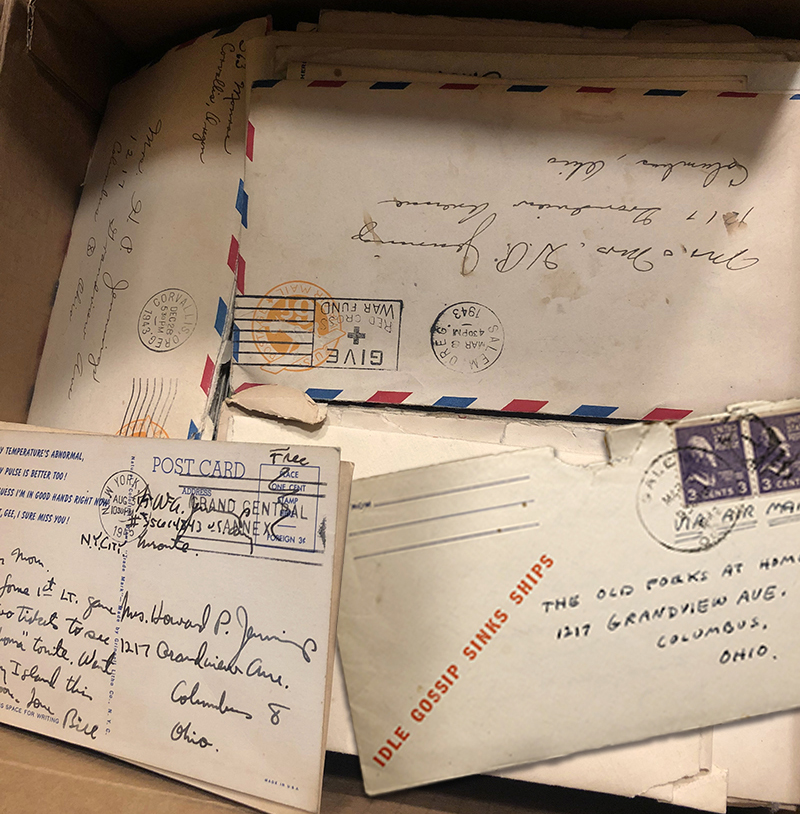 263 Monroe
Corvallis, Oregon
Mrs. H. P. Jennings
1217 Grandview Ave
Columbus 8 Ohio
CORVALLIS, OREG.
DEC 28
5 30 PM
1943
Mr. & Mrs. H. P. Jennings
1217 Grandview Avenue
Columbus, Ohio
SALEM, OREG.
MAR 8
4 30 PM
1943
GIVE
RED CROSS
WAR FUND
TEMPERATURE'S ABNORMAL,
PULSE IS BETTER TOO!
GUESS I'M IN GOOD HANDS RIGHT NOW
GEE, I SURE MISS YOU!
Mom.
Some 1st Lt. gave
two tickets to see
tonite. Went
Island this
Love
SPACE FOR WRITING
Bill
POST CARD
ADDRESS
Free
PLACE
ONE CENT
STAMP
FOREIGN 3¢
YORK
AUG
GRAND CENTRAL
ANNEX
N.Y. CITY
Mrs. Howard P. Jennings
1217 Grandview Ave.
Columbus 8
Ohio.
MADE IN U.S.A.
3 CENTS 3
3 CENTS 3
SALE
VIA AIR MA
IDLE GOSSIP SINKS SHIPS
THE OLD FOLKS AT HOME
1217 GRANDVIEW AVE.
COLUMBUS,
OHIO.